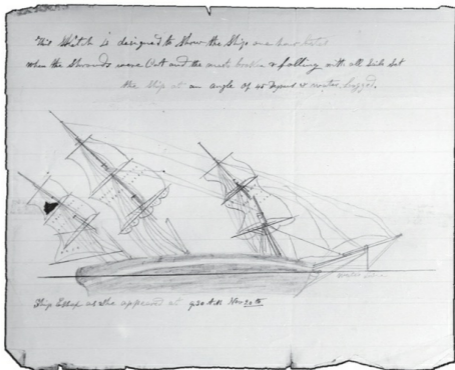 This Sketch is designed to show the Ships
when the Shrouds were Cut and the masts broken & falling with all sails set
the Ship at an angle of 45 degrees & water logged.
Ship as she appeared at 9 30 AM Nov 20th